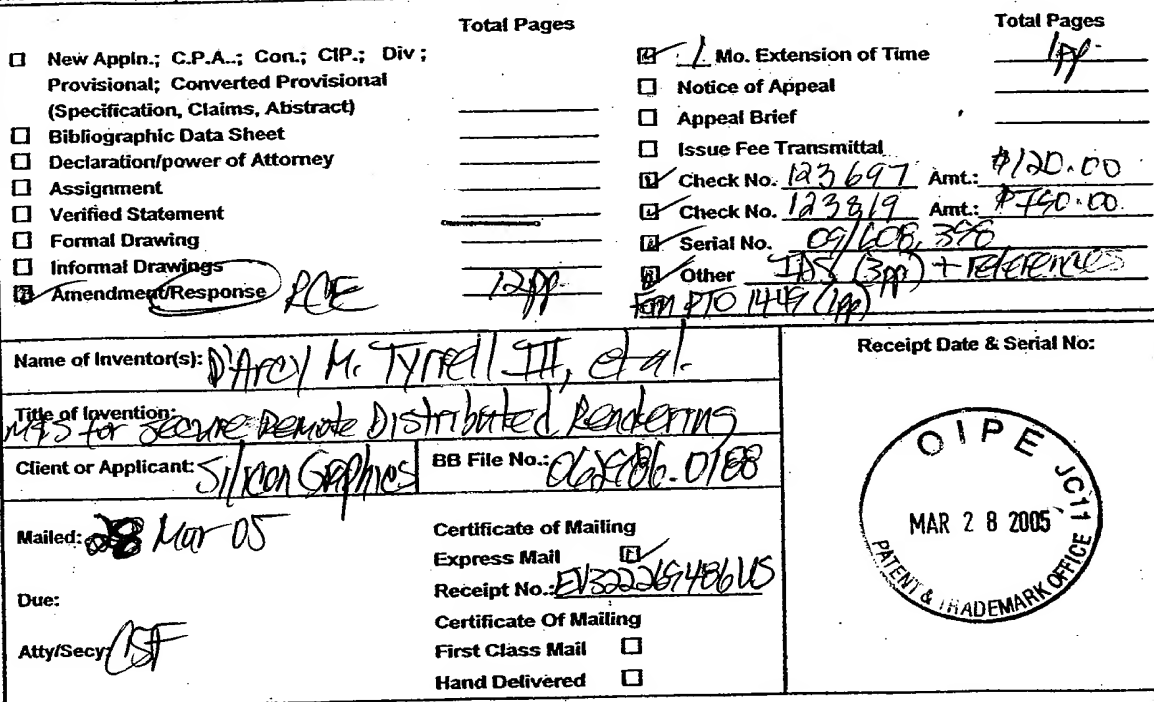 Total Pages
☐ New Appln.; C.P.A..; Con.; CIP.; Div ;
Provisional; Converted Provisional
(Specification, Claims, Abstract)
☐ Bibliographic Data Sheet
☐ Declaration/power of Attorney
☐ Assignment
☐ Verified Statement
☐ Formal Drawing
☐ Informal Drawings
☑ Amendment/Response RCE 12pp.
Total Pages
☑ 1 Mo. Extension of Time 1pp.
☐ Notice of Appeal
☐ Appeal Brief
☐ Issue Fee Transmittal
☑ Check No. 123697 Amt.: $120.00
☑ Check No. 123819 Amt.: $790.00
☑ Serial No. 09/608,398
☑ Other IDS (3pp) + references
Form PTO 1449 (1pp)
Name of Inventor(s): D'Arcy M. Tyrrell III, et al.
Title of Invention:
M&S for Secure Remote Distributed Rendering
Client or Applicant: Silicon Graphics
BB File No.: 062986.0188
Mailed: 28 Mar 05
Due:
Atty/Secy: CSF
Certificate of Mailing
Express Mail ☑
Receipt No.: EV322269486US
Certificate Of Mailing
First Class Mail ☐
Hand Delivered ☐
Receipt Date & Serial No:
OIPE JC11
MAR 28 2005
PATENT & TRADEMARK OFFICE